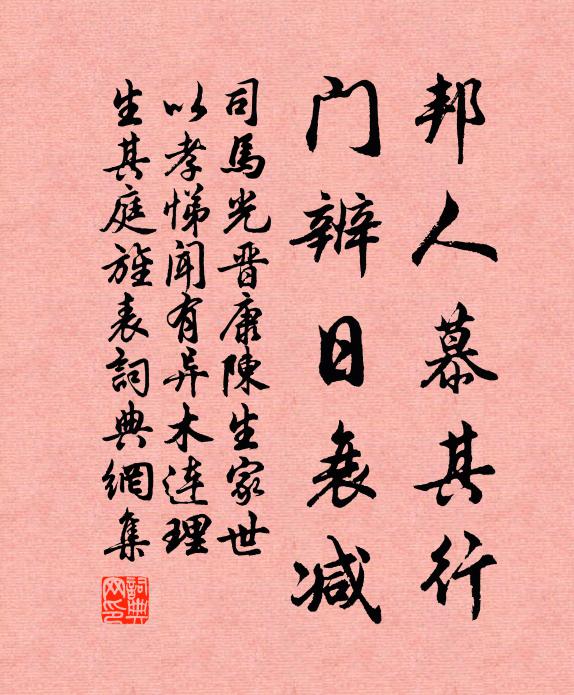 邦人慕其行
門辨日衰减
司馬光晋康陳生家世
以孝悌聞有异木连理
生其庭旌表詞典網集
詞典網印